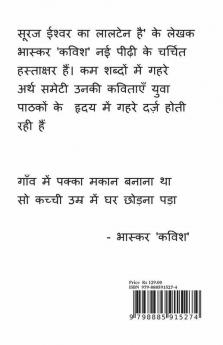 सूरज ईश्वर का लालटेन है' के लेखक
भास्कर 'कविश' नई पीढ़ी के चर्चित
हस्ताक्षर हैं। कम शब्दों में गहरे
अर्थ समेटी उनकी कविताएँ युवा
पाठकों के हृदय में गहरे दर्ज़ होती
रही हैं
गाँव में पक्का मकान बनाना था
सो कच्ची उम्र में घर छोड़ना पड़ा
- भास्कर 'कविश'
Price Rs 129.00
ISBN 979-888591527-4
9 798885 915274